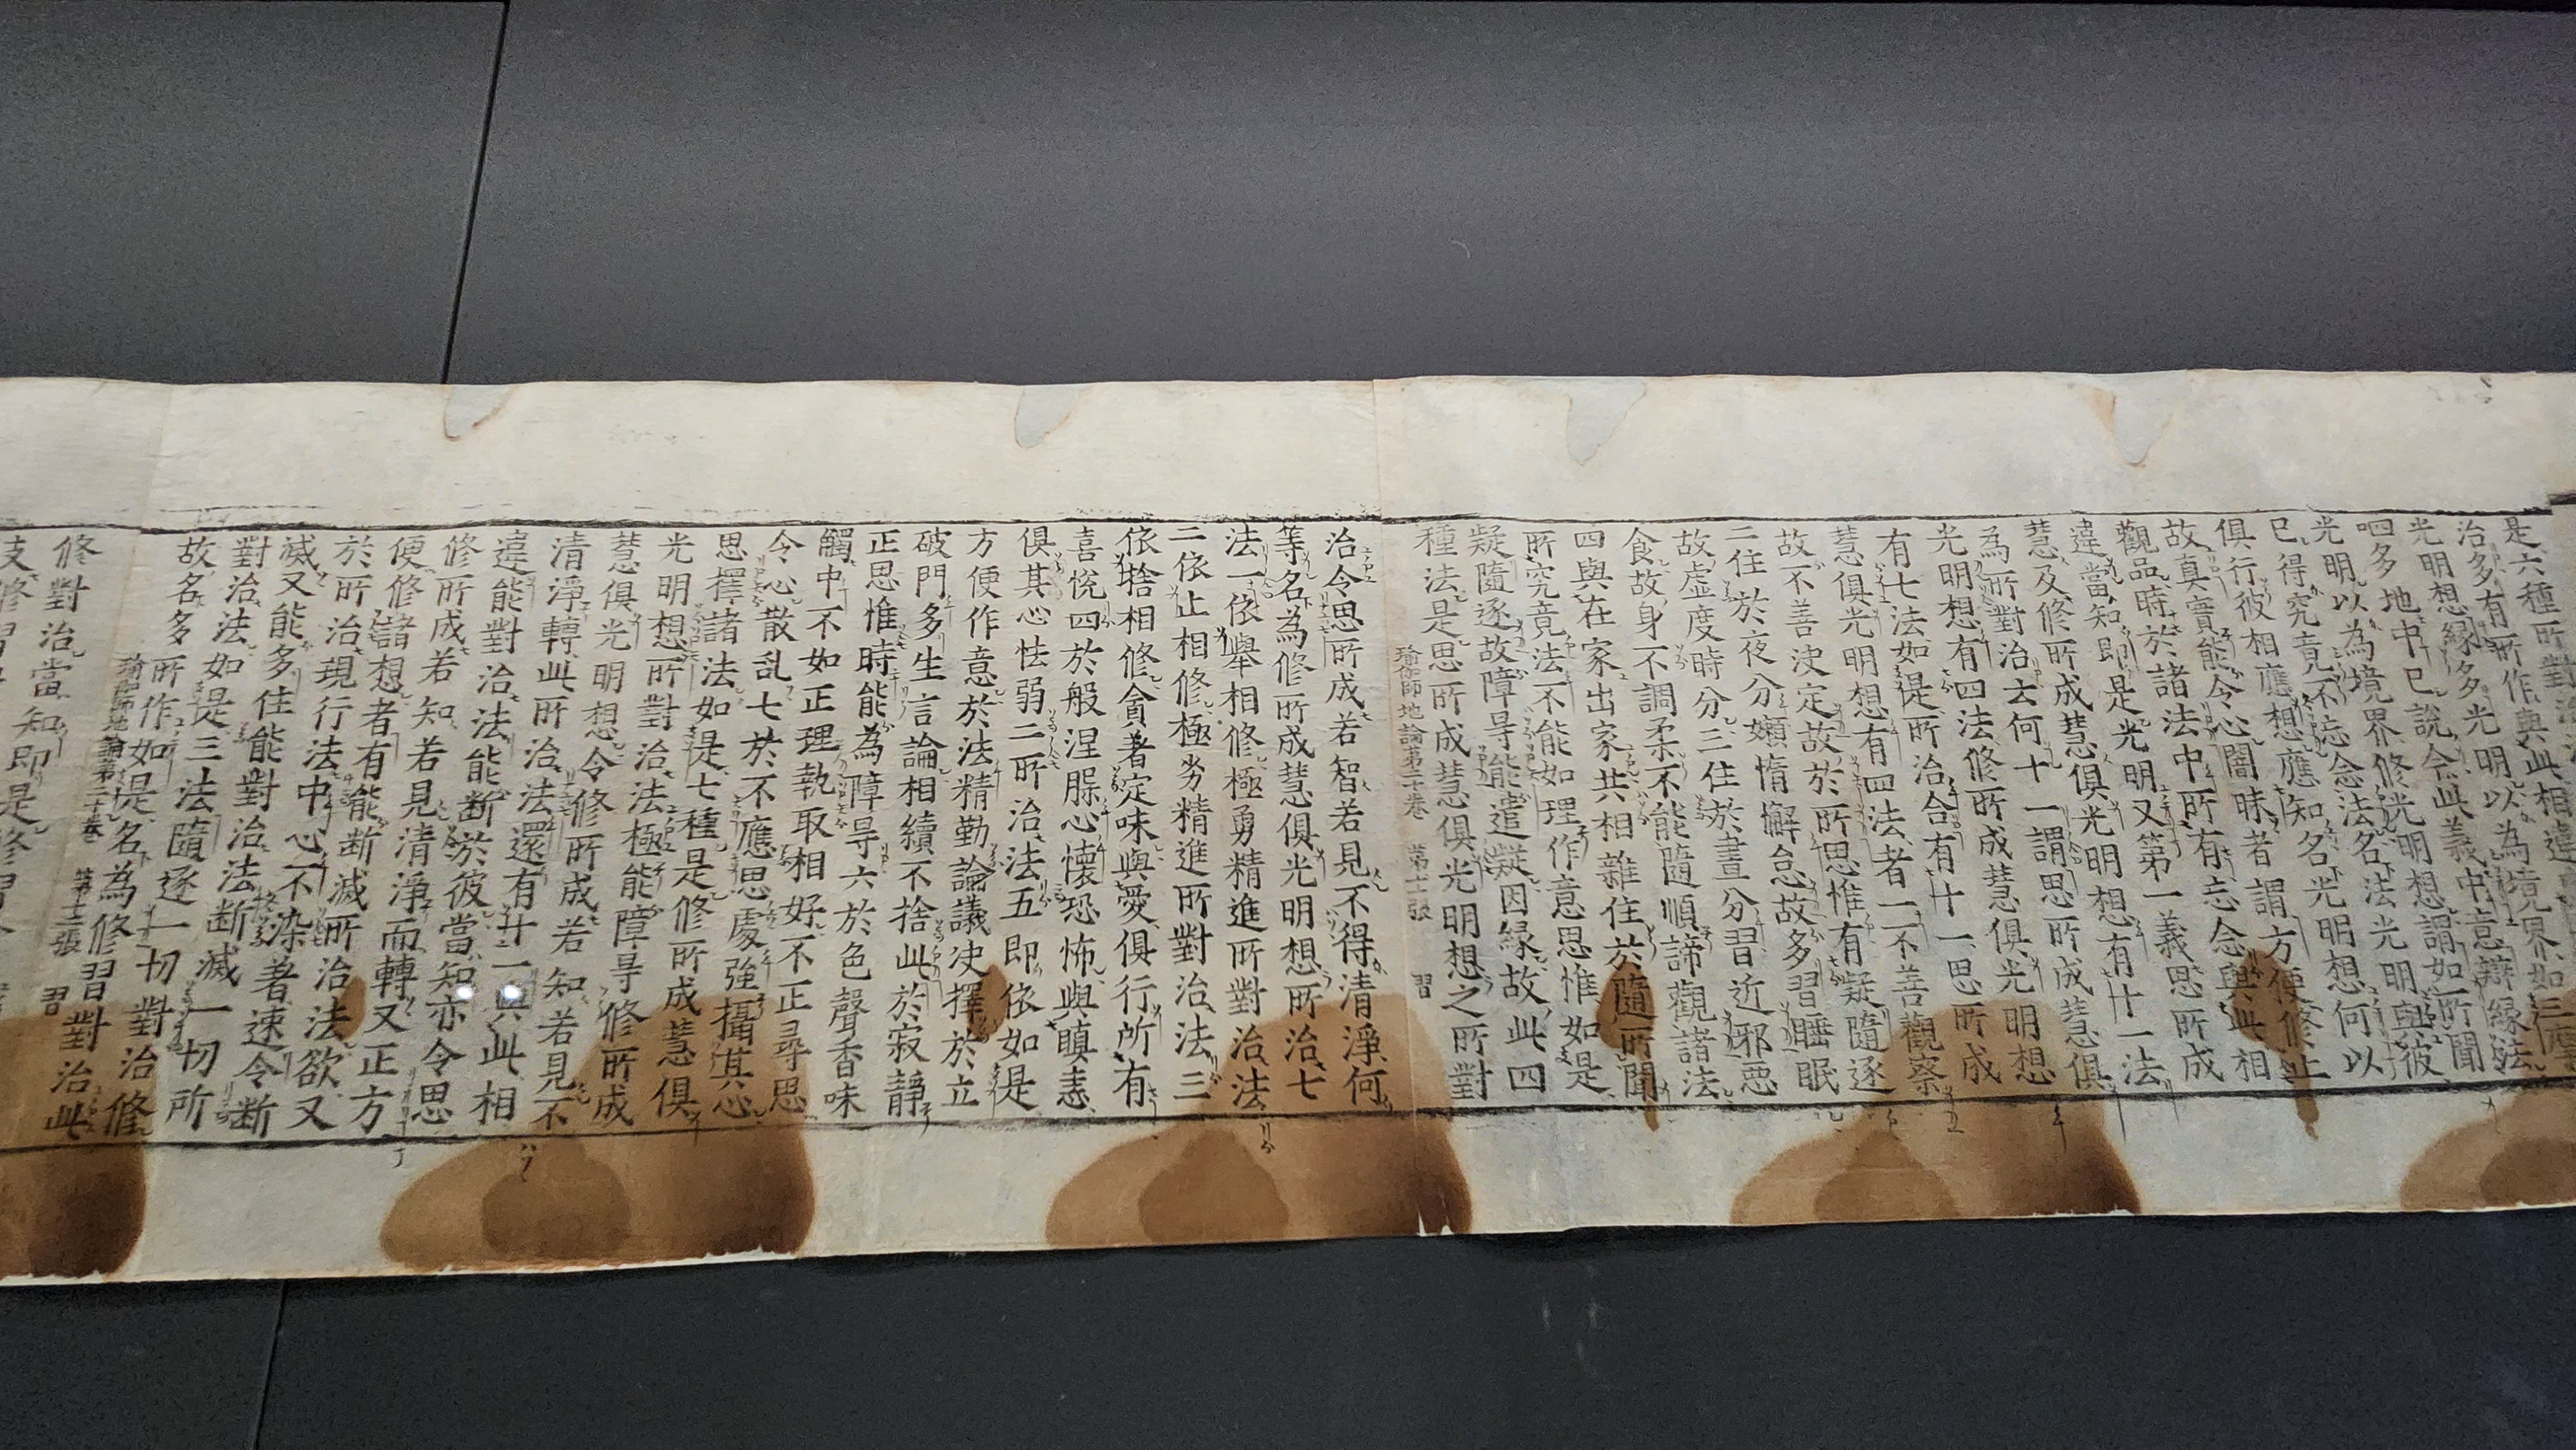 是六種所對治
治多有所作與此相違
光明想緣多光明以為境界如三摩
呬多地中已說今此義中意辯緣法
光明以為境界修光明想謂如所聞
已得究竟不忘念法名法光明與彼
俱行彼相應想應知名光明想何以
故真實能令心闇昧者謂方便修止
觀品時於諸法中所有忘念與此相
違當知即是光明又第一義思所成
慧及修所成慧俱光明想有十一法
為所對治云何十一謂思所成慧俱
光明想有四法修所成慧俱光明想
有七法如是所治合有十一思所成
慧俱光明想有四法者一不善觀察
故不善決定故於所思惟有疑隨逐
二住於夜分嬾惰懈怠故多習睡眠
故虛度時分三住於晝分習近邪惡
食故身不調柔不能隨順諦觀諸法
四與在家出家共相雜住於隨所聞
所究竟法不能如理作意思惟如是
疑隨逐故障㝵能遣疑因緣故此四
種法是思所成慧俱光明想之所對
瑜伽師地論第二十卷 第十一張 習
治令思所成若智若見不得清淨何
等名為修所成慧俱光明想所治七
法一依舉相修極勇精進所對治法
二依止相修極劣精進所對治法三
依捨相修貪著定味與愛俱行所有
喜悅四於般涅槃心懷恐怖與瞋恚
俱其心怯弱二所治法五即依如是
方便作意於法精勤論議決擇於立
破門多生言論相續不捨此於寂靜
正思惟時能為障㝵六於色聲香味
觸中不如正理執取相好不正尋思
令心散乱七於不應思處強攝其心
思擇諸法如是七種是修所成慧俱
光明想所對治法極能障㝵修所成
慧俱光明想令修所成若知若見不
清淨轉此所治法還有十一與此相
違能對治法能断於彼當知亦令思
修所成若知若見清淨而轉又正方
便修諸想者有能断滅所治法欲又
於所治現行法中心不染著速令断
滅又能多住能對治法断滅一切所
對治法如是三法隨逐一切對治修
故名多所作如是名為修習對治此
瑜伽師地論第二十卷 第十二張 習
修對治當知即是修習